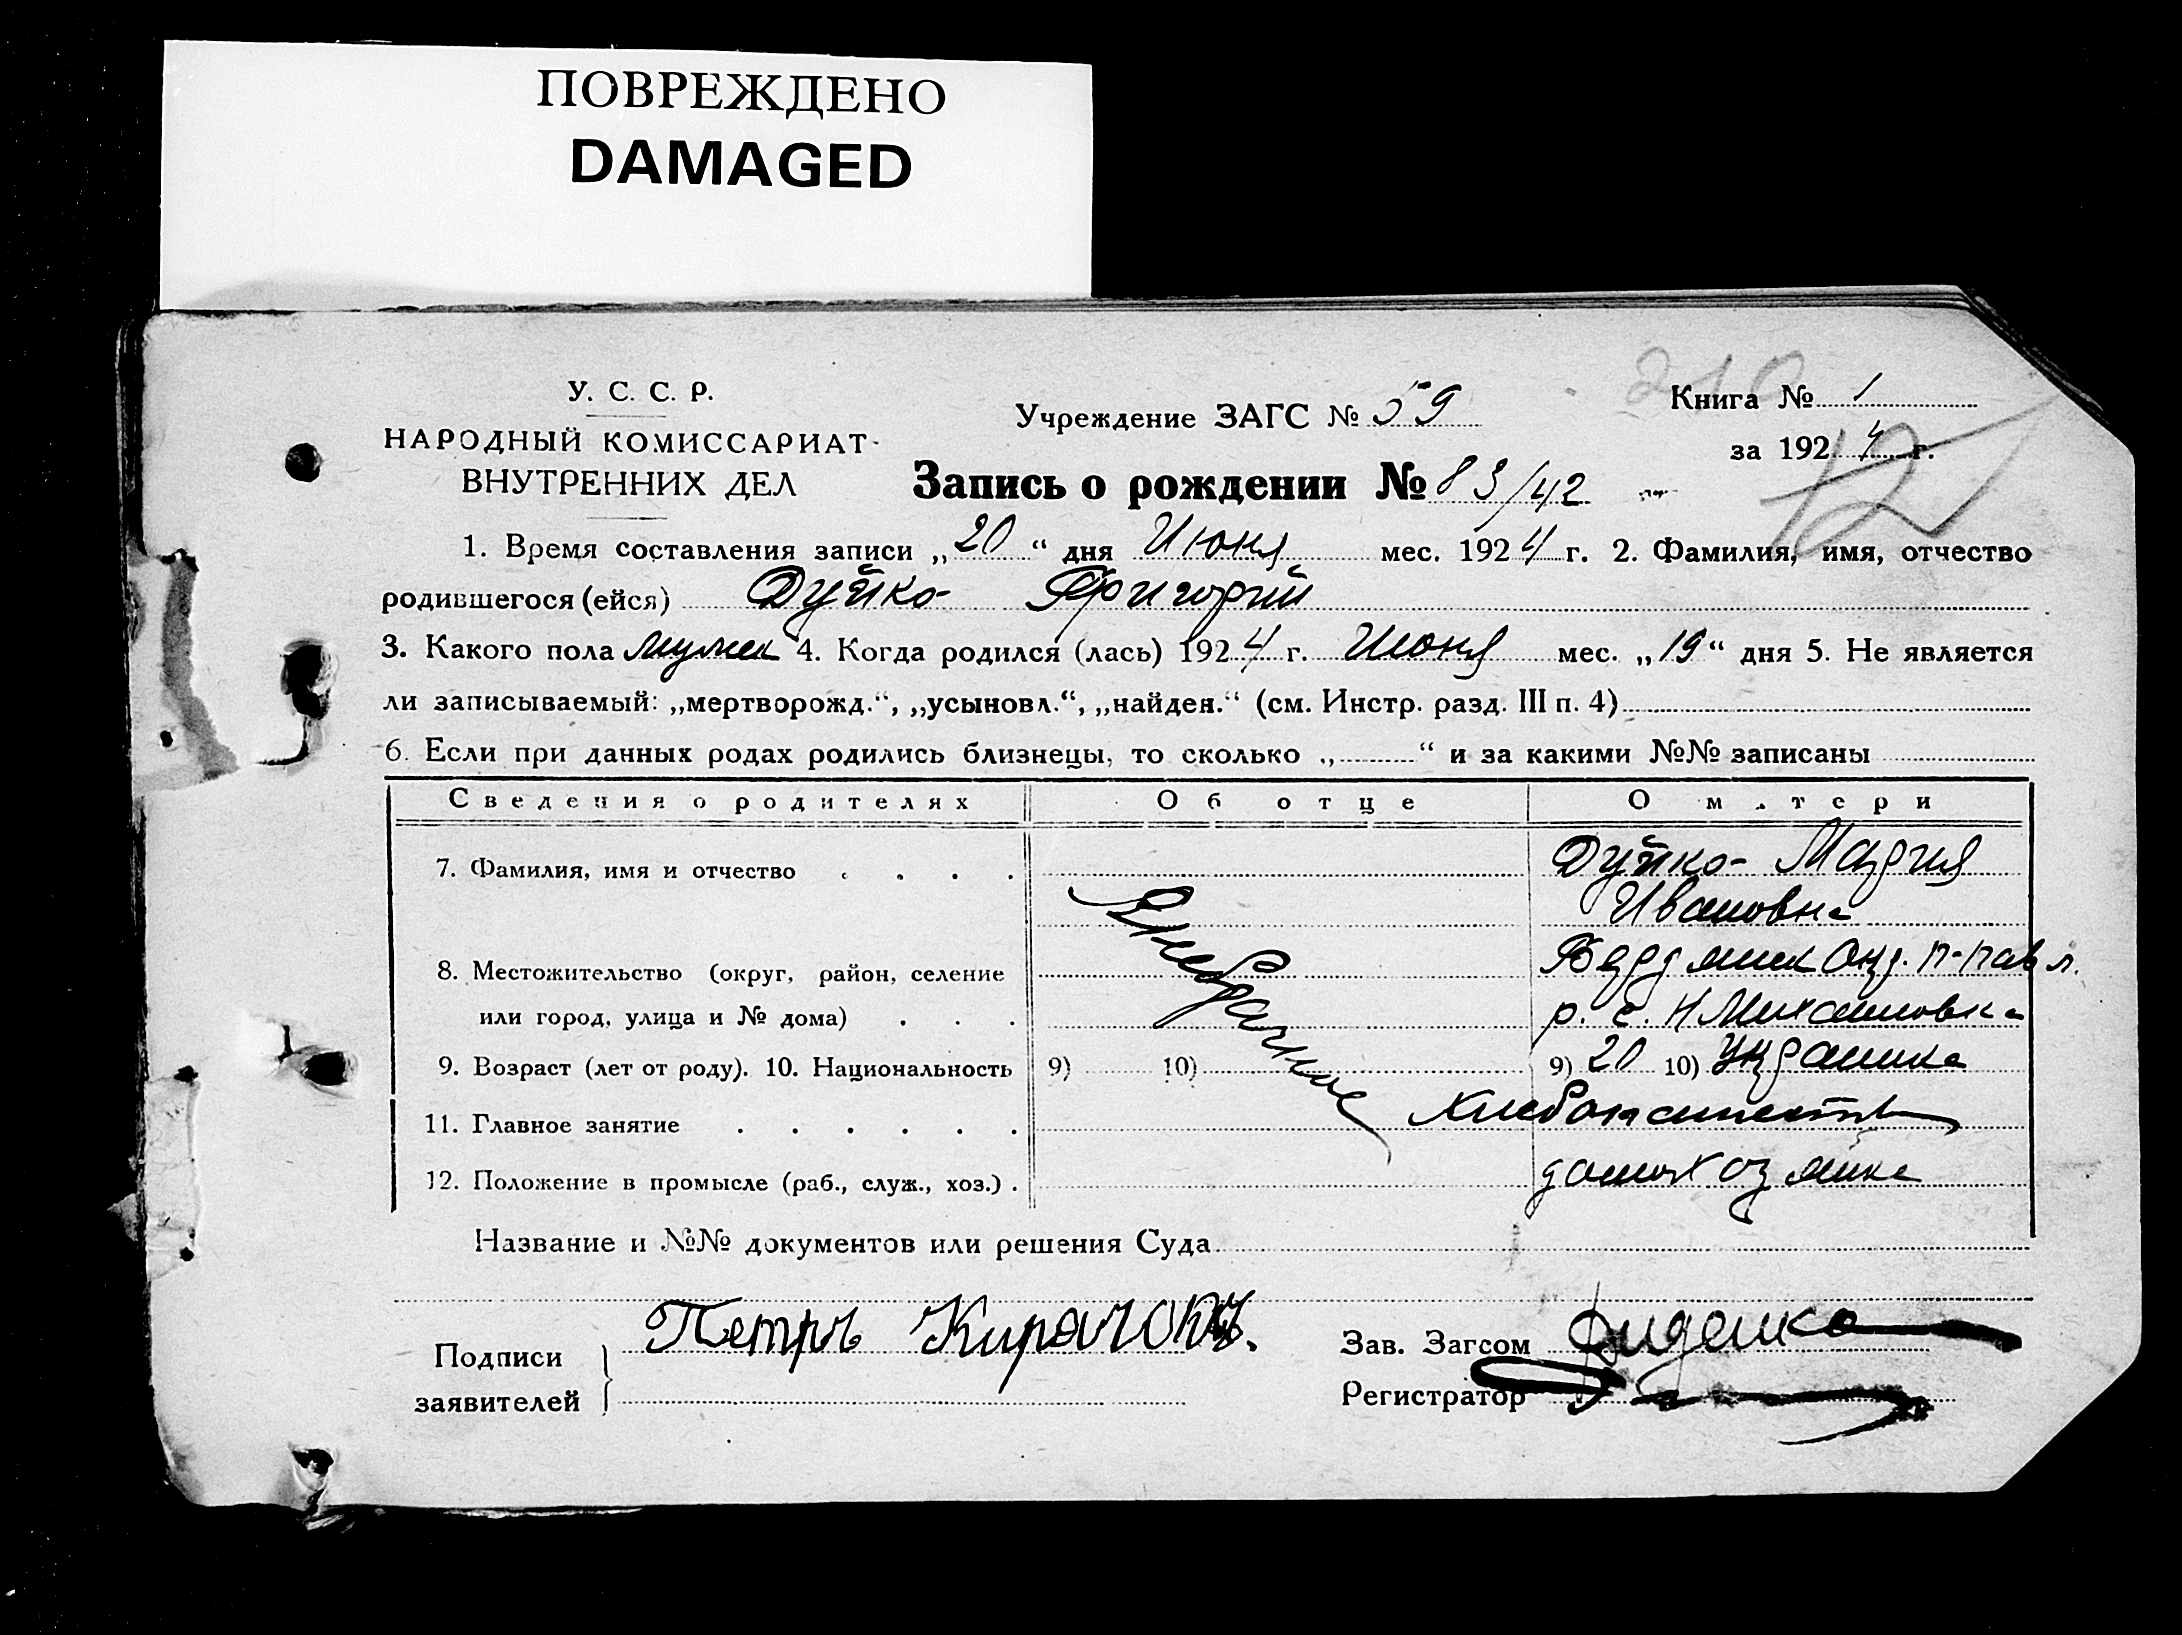 ПОВРЕЖДЕНО
DAMAGED
210
У. С. С. Р.
НАРОДНЫЙ КОМИССАРИАТ
ВНУТРЕННИХ ДЕЛ
Учреждение ЗАГС № 59
Книга № 1
за 1924 г.
12
Запись о рождении № 83/42
1. Время составления записи „20“ дня Июня мес. 1924 г. 2. Фамилия, имя, отчество
родившегося (ейся) Дуйко Григорий
3. Какого пола мужск 4. Когда родился (лась) 1924 г. Июня мес. „19“ дня 5. Не является
ли записываемый: „мертворожд.“, „усыновл.“, „найден.“ (см. Инстр. разд. III п. 4)
6. Если при данных родах родились близнецы, то сколько „ “ и за какими №№ записаны
Сведения о родителях Об отце О м.тери
7. Фамилия, имя и отчество . . . . Дуйко Мария
Ивановна
Внебрачные
8. Местожительство (округ, район, селение
или город, улица и № дома) . . . р. с. Н Михайловка
9. Возраст (лет от роду). 10. Национальность 9) 10) 9) 20 10) Украинка
11. Главное занятие . . . . . .
12. Положение в промысле (раб., служ., хоз.) . домохозяйка
Название и №№ документов или решения Суда
Подписи заявителей Петръ
Зав. Загсом
Регистратор